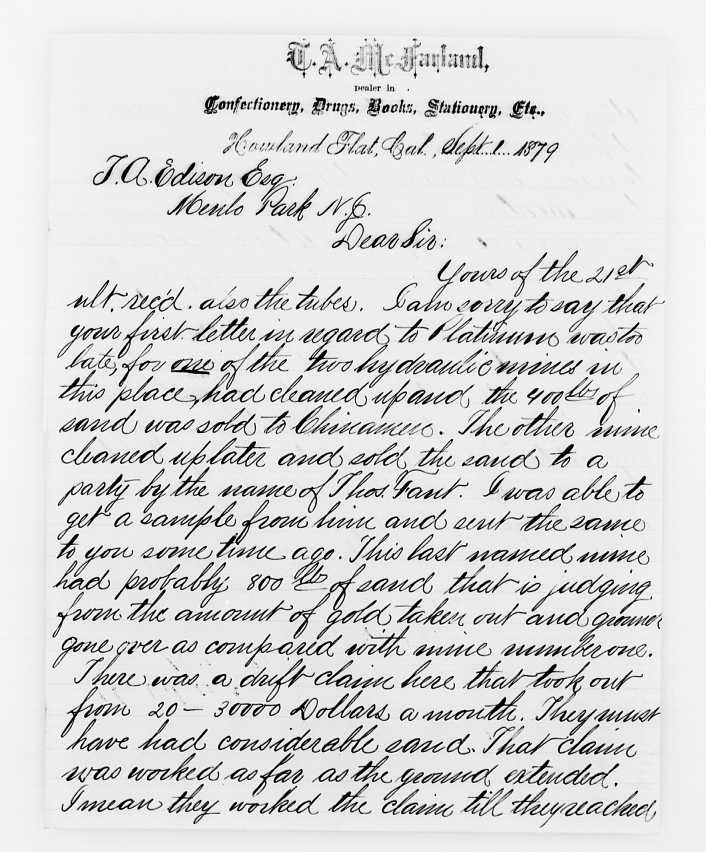 T. A. McFarland,
Dealer in
Confectionery, Drugs, Books, Stationery, Etc.,
Howland Flat, Cal., Sept. 1 1879
T. A. Edison Esq.
Menlo Park N.J.
Dear Sir:
Yours of the 21st
ult. rec'd. also the tubes. I am sorry to say that
your first letter in regard to Platinum was too
late, for one of the two hydraulic mines in
this place, had cleaned up and the 400 lbs of
sand was sold to Chinamen. The other mine
cleaned up later and sold the sand to a
party by the name of Thos. Fant. I was able to
get a sample from him and sent the same
to you some time ago. This last named mine
had probably 800 lbs of sand that is judging
from the amount of gold taken out and ground
gone over as compared with mine number one.
There was a drift claim here that took out
from 20 - 30000 Dollars a month. They must
have had considerable sand. That claim
was worked as far as the ground extended.
I mean they worked the claim till they reached